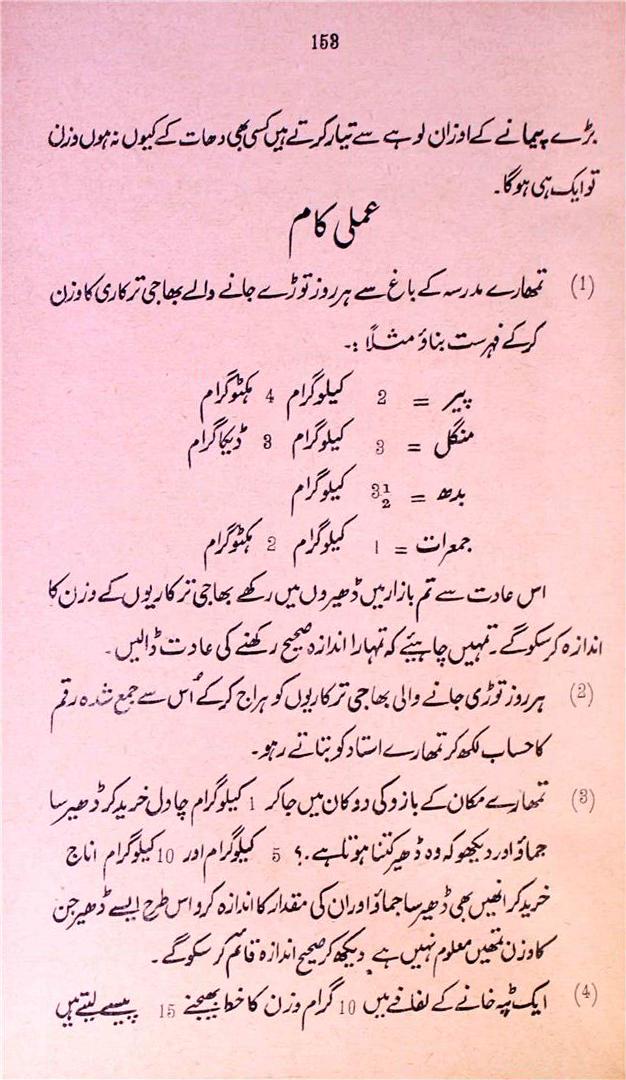 153
بڑے پیمانے کے اوزان لوہے سے تیار کرتے ہیں کسی بھی دھات کے کیوں نہ ہوں وزن
تو ایک ہی ہوگا۔
عملی کام
(1) تمھارے مدرسہ کے باغ سے ہر روز توڑے جانے والے بھاجی ترکاری کا وزن
کرکے فہرست بناؤ مثلاً :۔
پیر = 2 کیلوگرام 4 ہکٹوگرام
منگل = 3 کیلوگرام 3 ڈیکاگرام
بدھ = 3½ کیلوگرام
جمعرات = 1 کیلوگرام 2 ہکٹوگرام
اس عادت سے تم بازار میں ڈھیروں میں رکھے بھاجی ترکاریوں کے وزن کا
اندازہ کرسکوگے۔ تمہیں چاہیئے کہ تمہارا اندازہ صحیح رکھنے کی عادت ڈالیں۔
(2) ہر روز توڑی جانے والی بھاجی ترکاریوں کو ہراج کرکے اُس سے جمع شدہ رقم
کا حساب لکھ کر تمھارے استاد کو بتاتے رہو۔
(3) تمھارے مکان کے بازو کی دوکان میں جاکر 1 کیلوگرام چاول خرید کر ڈھیر سا
جماؤ اور دیکھو کہ وہ ڈھیر کتنا ہوتا ہے۔؟ 5 کیلوگرام اور 10 کیلوگرام اناج
خرید کر انھیں بھی ڈھیر سا جماؤ اور ان کی مقدار کا اندازہ کرو اس طرح ایسے ڈھیر جن
کا وزن تمھیں معلوم نہیں ہے دیکھ کر صحیح اندازہ قائم کر سکوگے۔
(4) ایک ٹپہ خانے کے لفافے میں 10 گرام وزن کا خط بھیجنے 15 پیسے لیتے ہیں